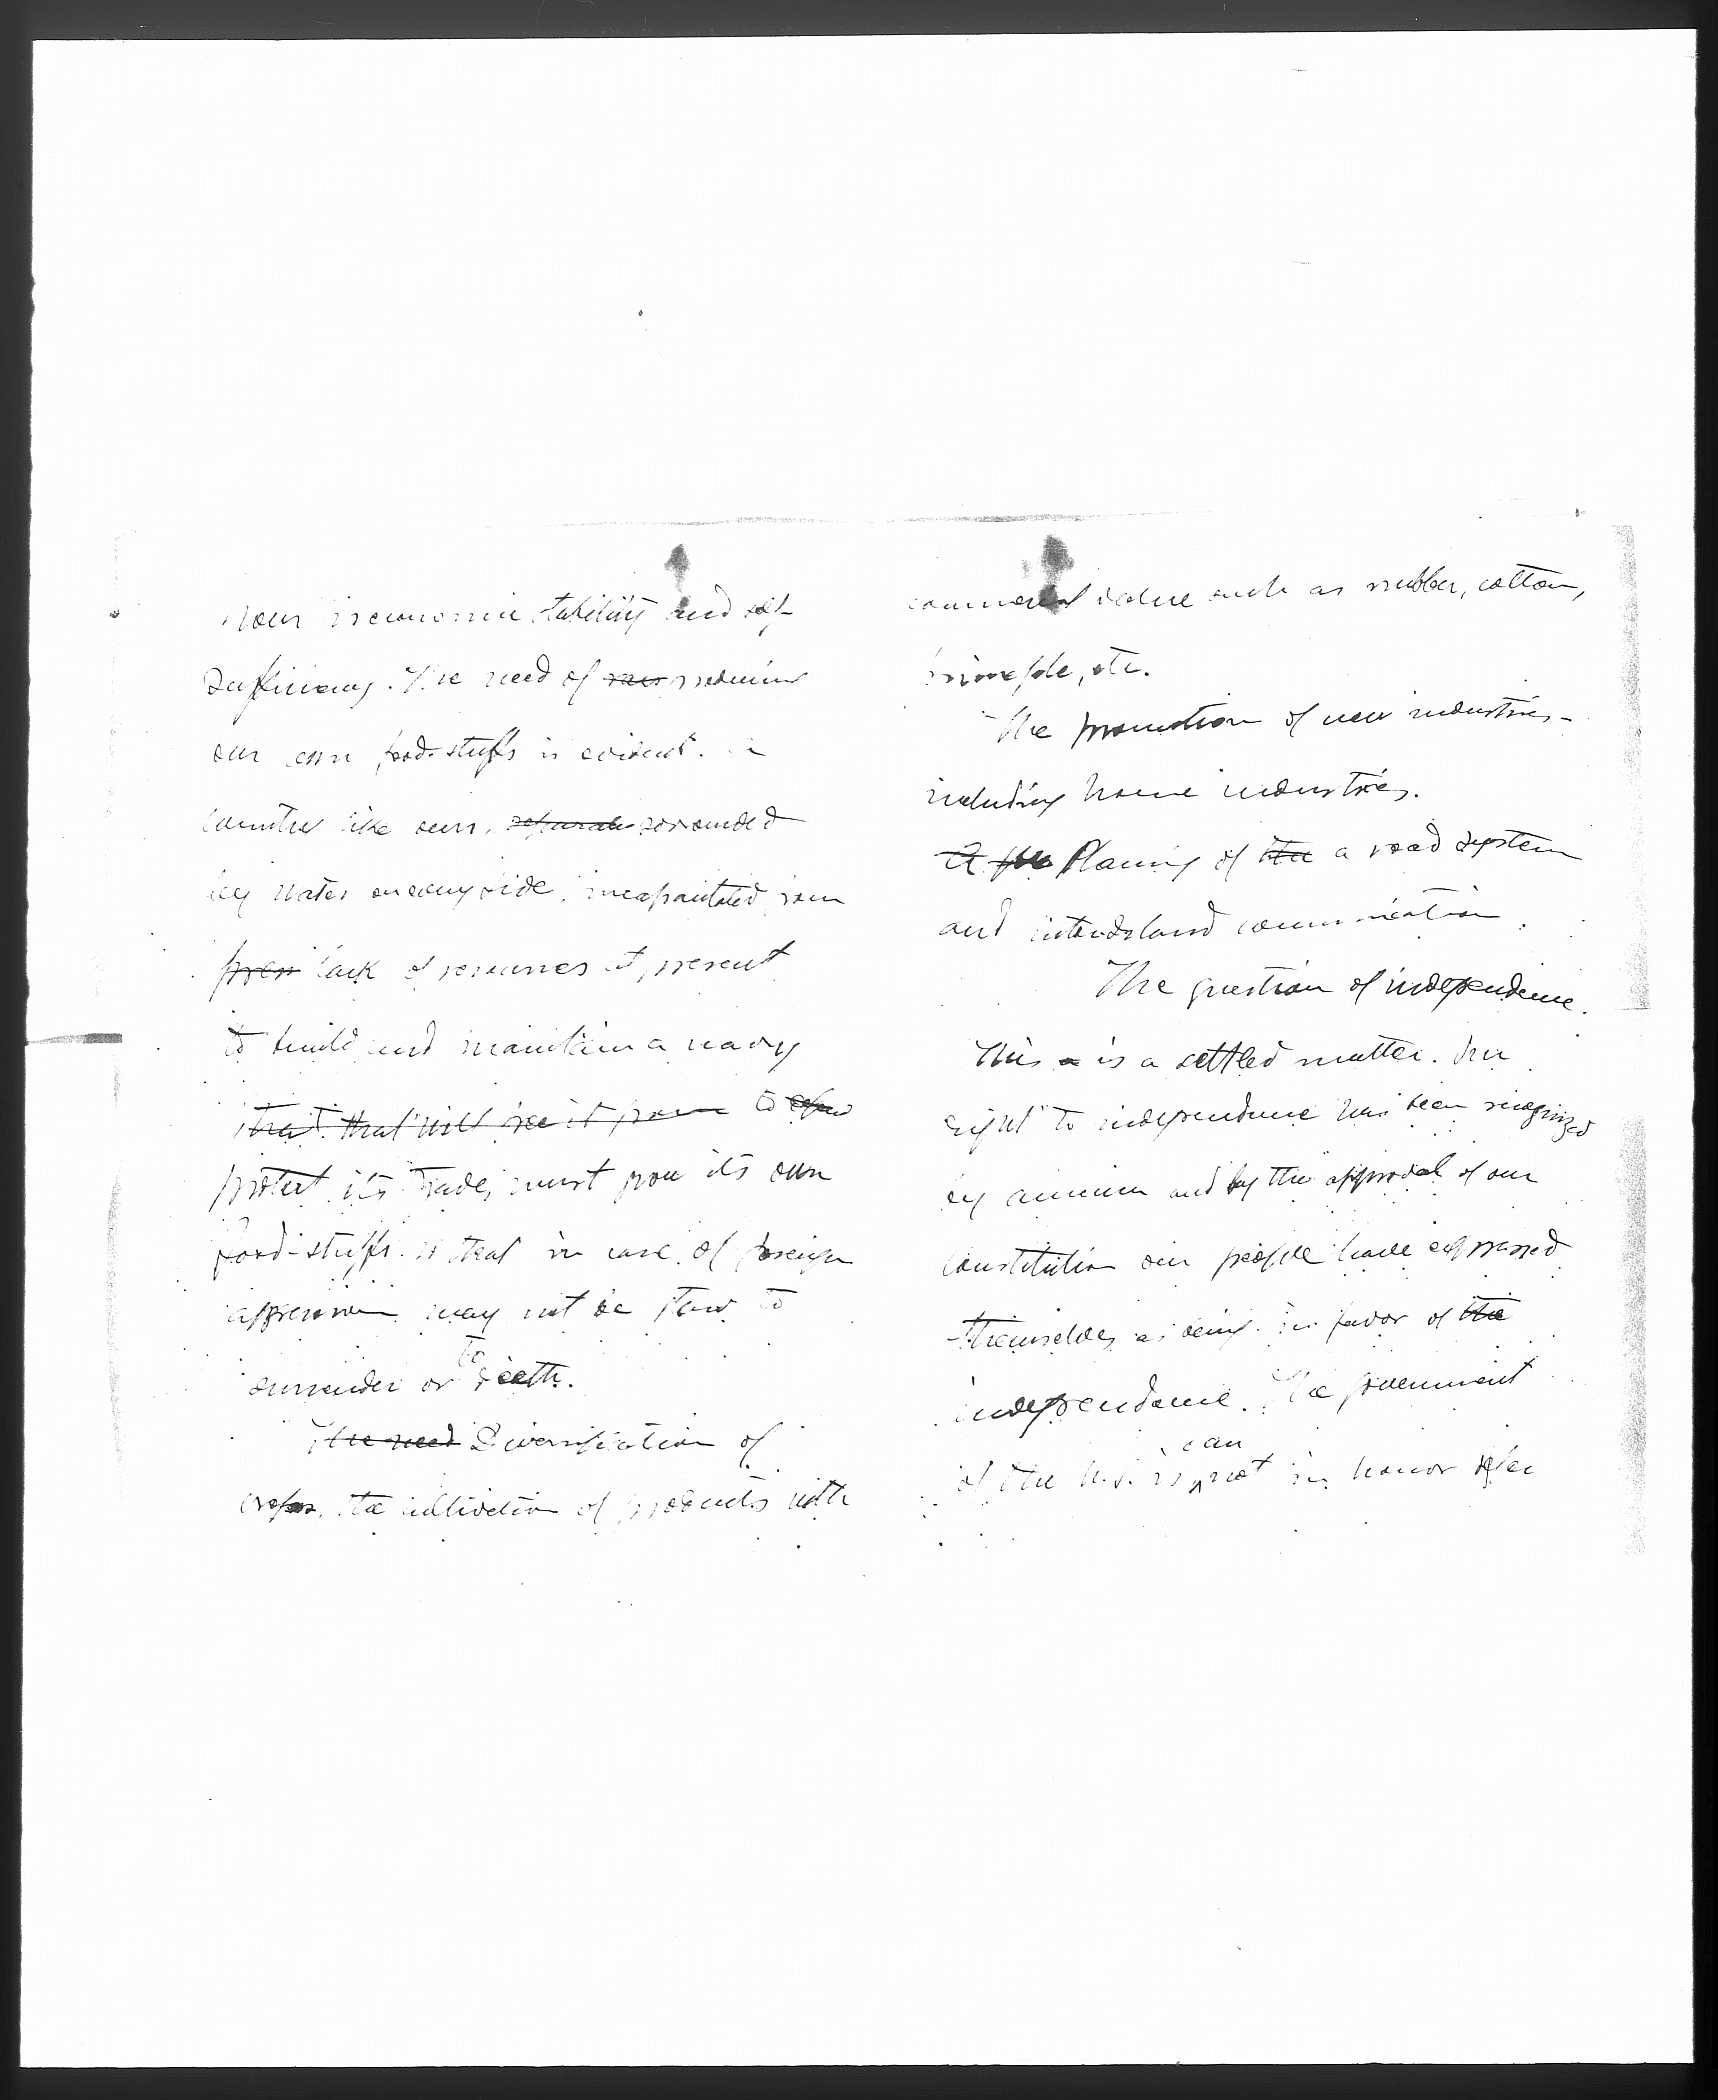 economic stability and self
sufficiency. The need of producing
our own food-stuffs is evident. a
country like ours, separate sorrounded
by water on every side, incapacitated from
from lack of resources at present
to build and maintain a navy
that that will to
protect its trade, must grow its own
food-stuffs so that in case of foreign
aggression may not be to
surrender or to death.
The need Diversification of
crops. the cultivation of products with
commercial value such as rubber, cotton,
etc.
The promotion of new industries-
including home industries.
Planing of the a road system
and communication.
The question of independence.
This is a settled matter. Our
right to independence has been recognized
by America and by the approval of our
constitution our people have expressed
themselves as being in favor of the
independence. The government
of the U.S. is can not in honor